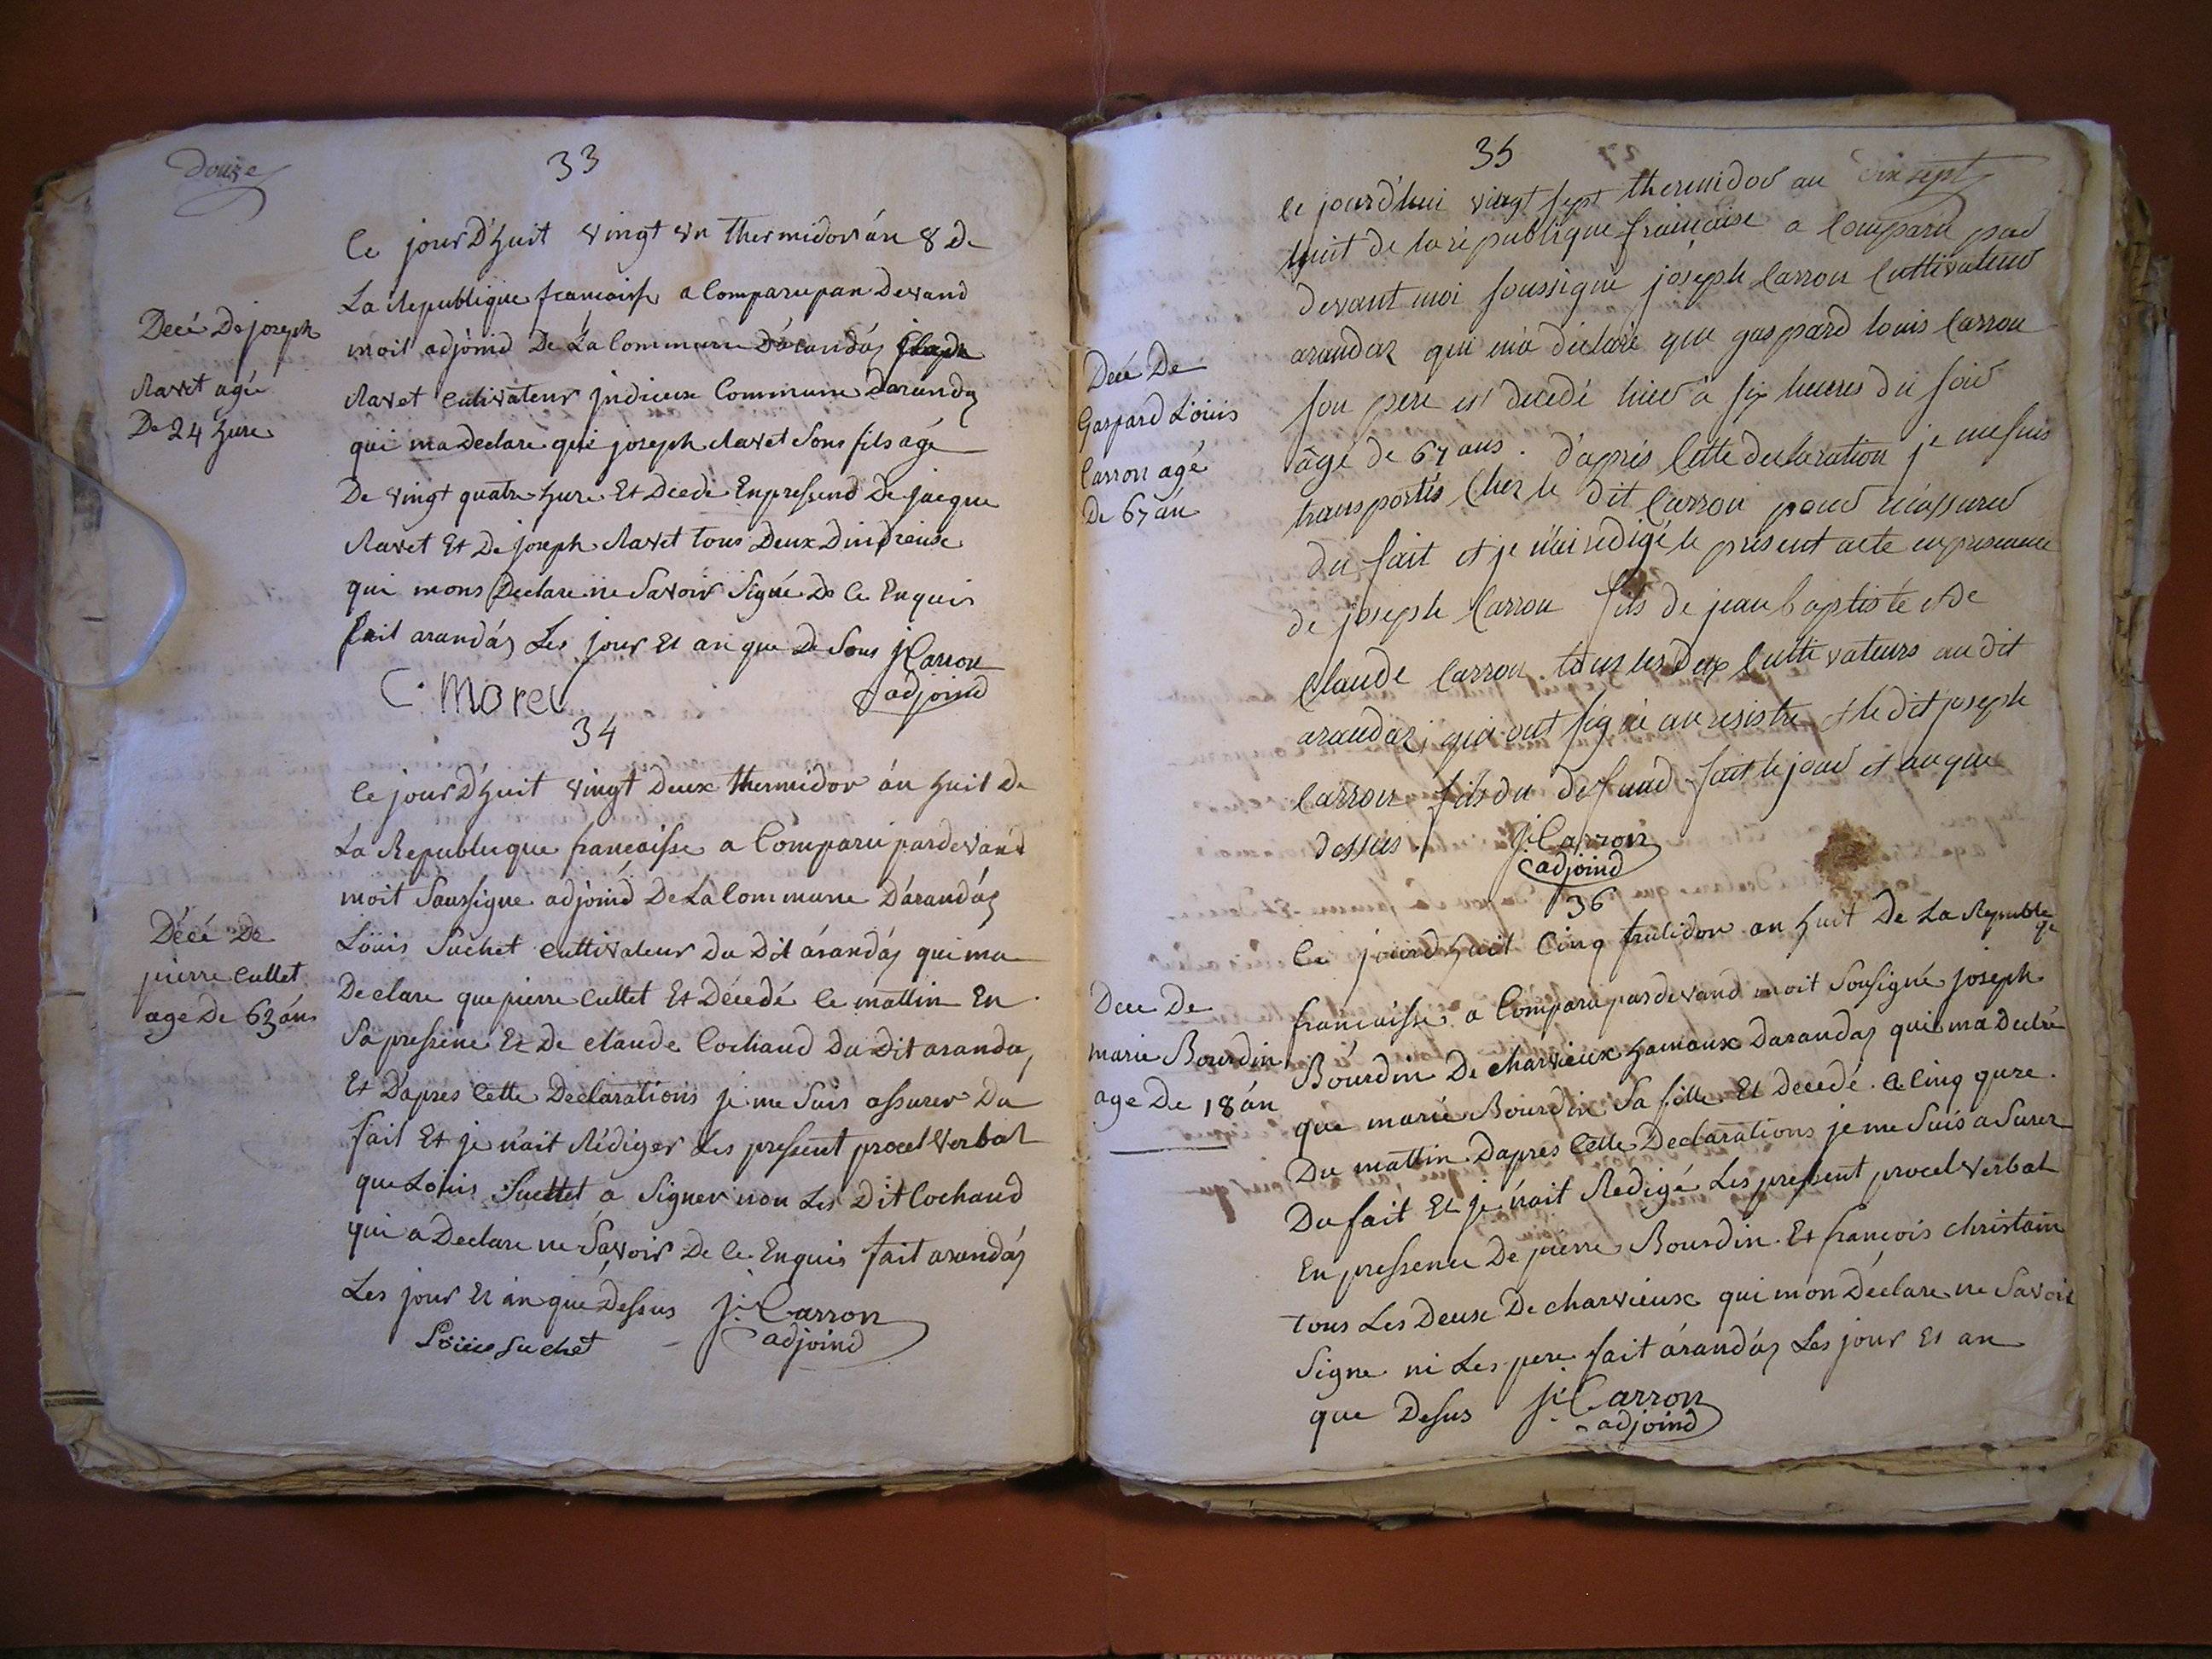 douze
33
Ce jour D'huit vingt un thermidor án 8 de
La Republique francaisse a Comparu par devand
moit adjoind De La Commune Dárandás
Decé De joseph
Ravet agé
De 24 hure
Ravet Cutivateur jndrieux Commune Darandas
qui ma Declare que joseph Ravet Sons fils agé
De vingt quatre hure Et Decede En pressend De jacque
Ravet Et De joseph Ravet tous Deux Dindrieux
qui mons Declare ne Savoir Signé De Ce Enquis
fait arandás Les jour Et an que De Sous J. Carron
adjoind
C. Morel
34
Ce jour D'huit vingt Deux thermidor án huit De
La Republicque francaisse a Comparu pardevand
moit Soussigne adjoind De La Commune Dárandás
Décé De
pierre Cullet
age De 63 án
Loüis Suchet Cuttivateur Du Dit árandás qui ma
Declare que pierre Cullet Et Décedé Ce mattin En
Sa pressene Et De Claude Cochaud Du Dit aranda,
Et Dapres Cette Declarations je me Suis assurer Du
fait Et je n'ait Rédiger Les pressent procel verbal
que Loüis Suchet a Signer non Les Dit Cochaud
qui á Declare ne Savoir De Ce Enquis fait arandás
Les jour Et án que Dessus J. Carron
adjoind
Loüis Suchet
35
dix sept
Ce jourd'hui vingt sept thermidor an
huit de la république française a Comparu par
devant moi soussigné joseph Carron Cultivateur
arandaz qui m'a déclaré que gaspard louis Carron
Decé De
Gaspard Loüis
Carron agé
De 67 án
son pere est decedé hier à six heures du soir
âgé de 67 ans. d'après Cette declaration je me suis
transportés Chez le dit Carron pour m'assurer
du fait et je n'ai redigé le présent acte en presence
de joseph Carron fils de jean baptiste et de
Claude Carron tous les deux Cultivateurs au dit
arandaz, qui ont signé au resistre et le dit joseph
Carron fils du defund fait le jour et an que
dessus J. Carron
adjoind
36
Ce jourd'huit Cinq frutidor an huit De La Republeqe
francaisse a Comparu pardevand moit Sousigné joseph
Decé De
marie Bourdin
age De 18 án
Bourdin De charvieux hamaux Darandas qui ma Declré
que marie Bourdin Sa fille Et Decedé a Cinq hure
Du mattin Dapres Cette Declarations je me Suis a Surer
Du fait Et je n'ait Redigé Les pressent procel verbal
En pressence De pierre Bourdin Et françois christain
tous Les Deux De charvieux qui mon Declare ne Savoir
Signe ni Les pere fait árandás Les jour Et an
que Desus J. Carron
adjoind